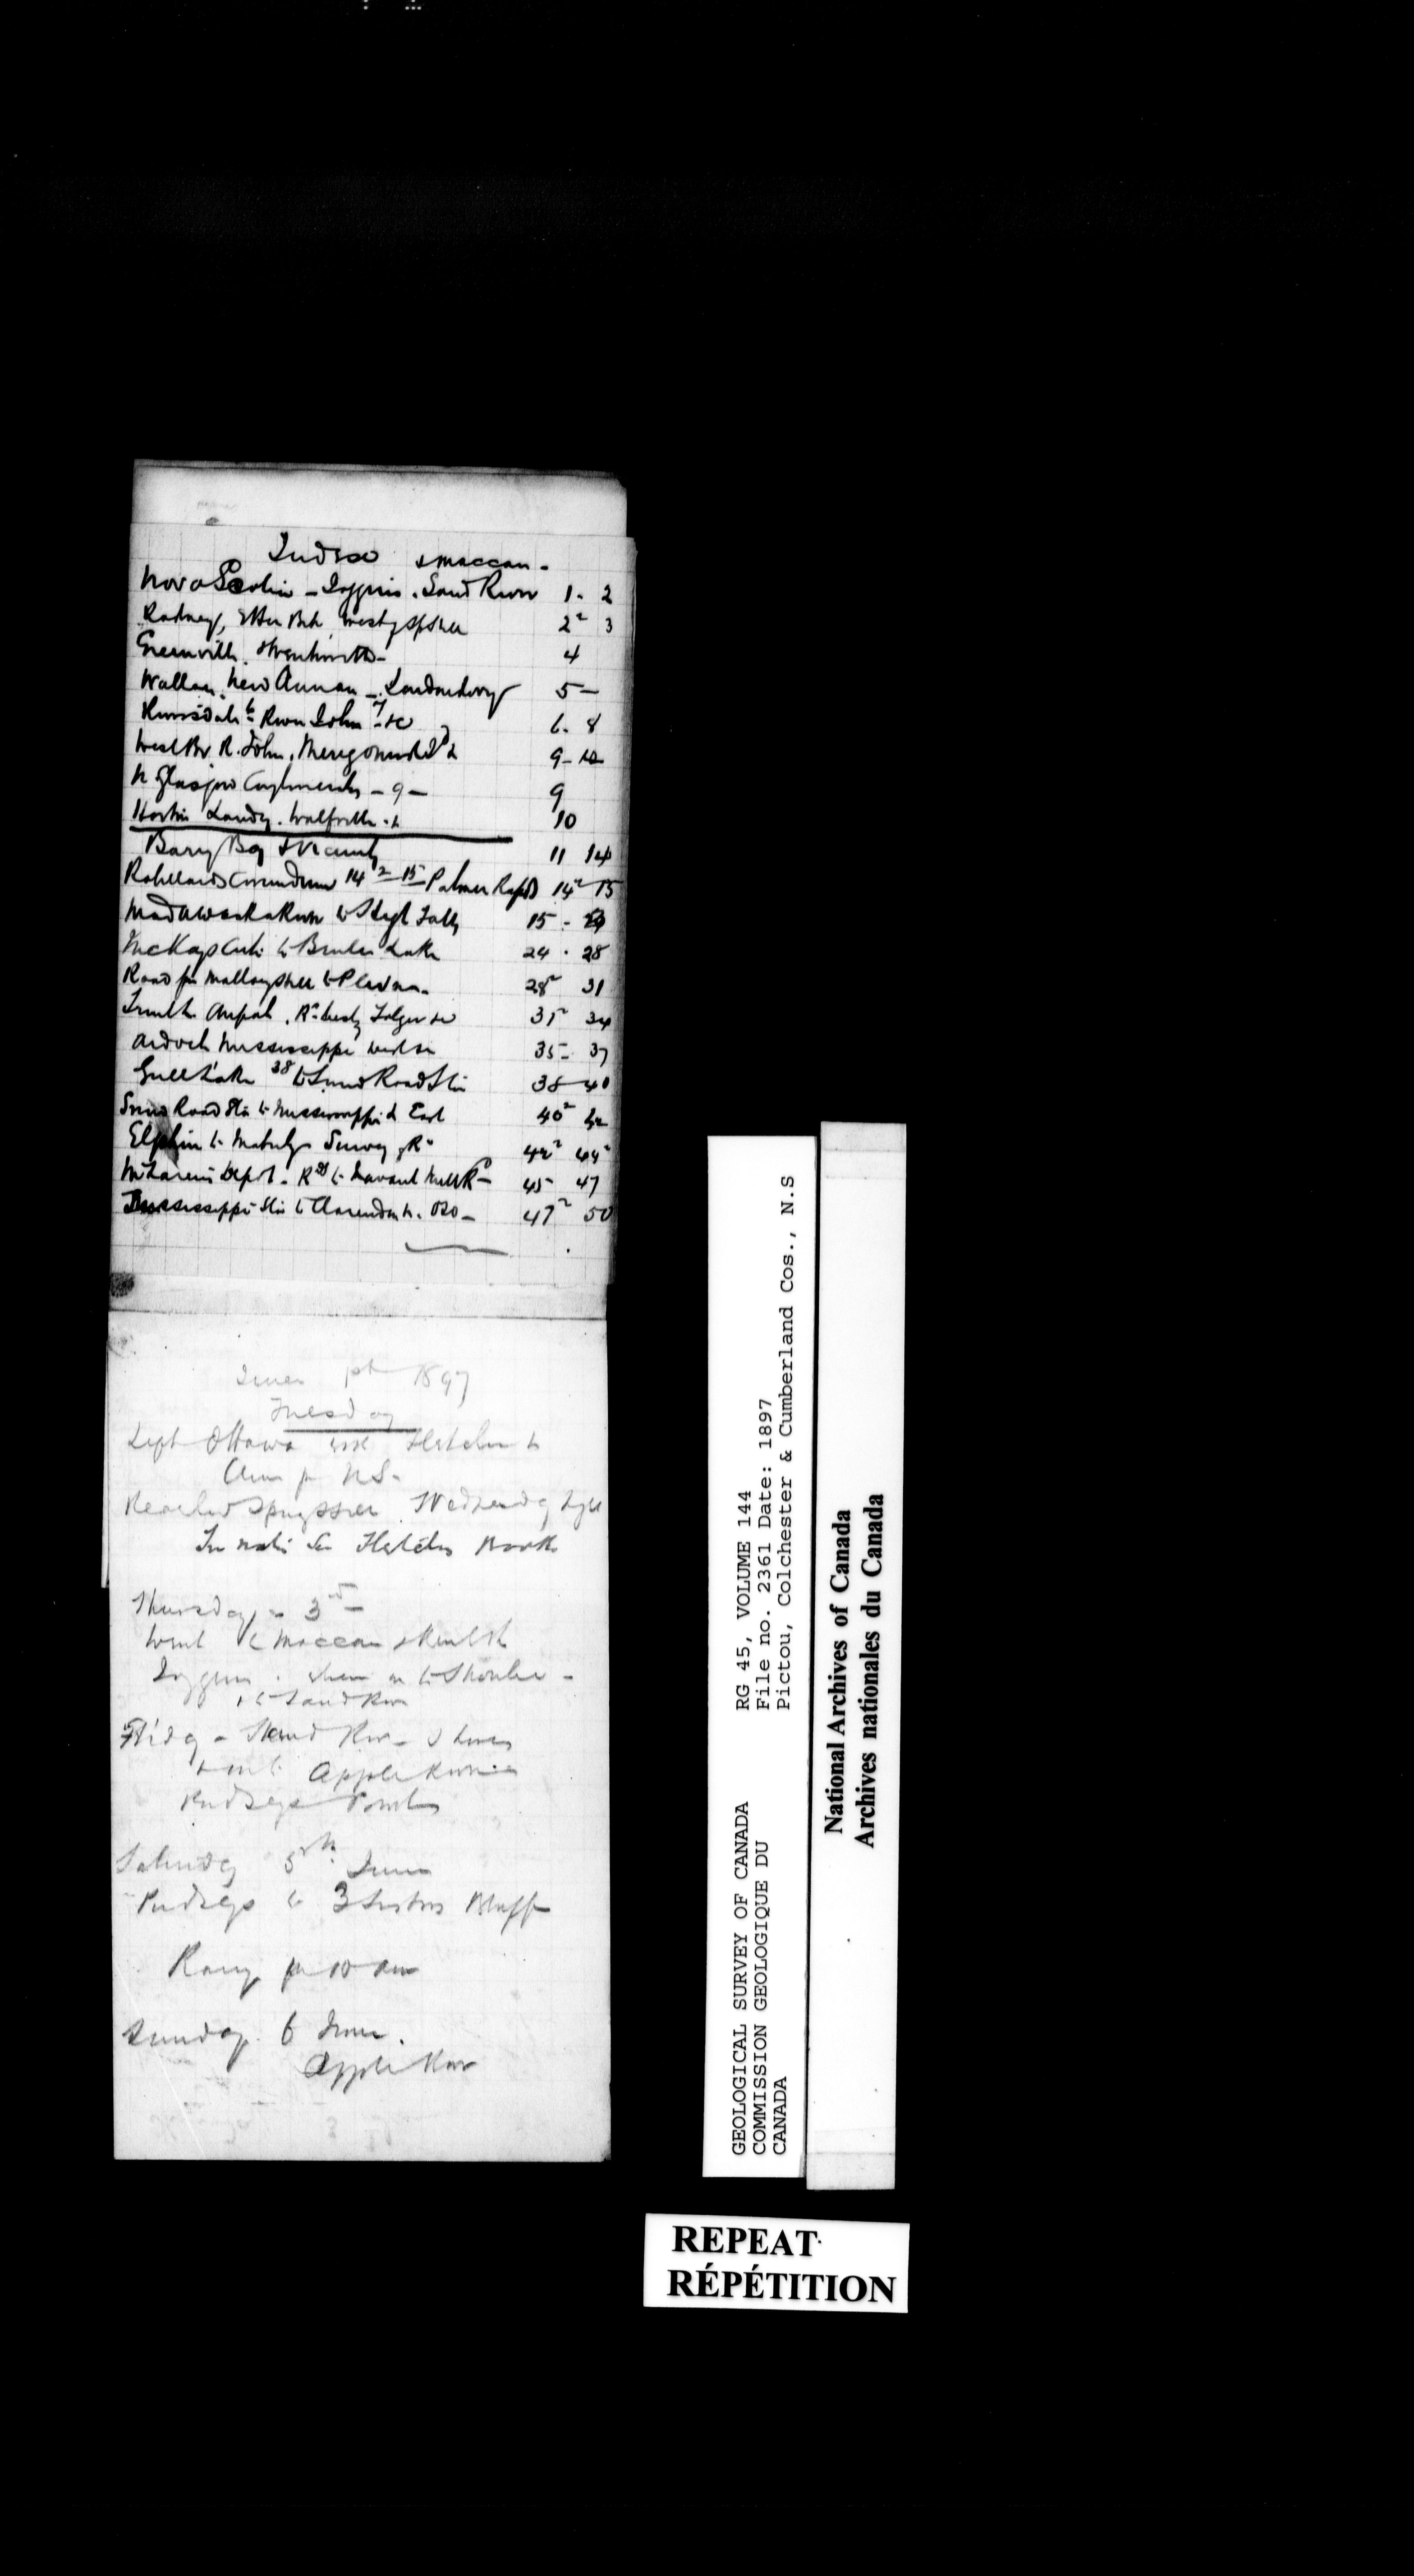 Index & Maccan -
Nova Scotia - Joggins. Sand River 1 - 2
Rodney, Etter Bk, West of Spghill 2² 3
Greenville. Wentworth - 4
Wallace. New Annan - Londonderry 5 -
6 River John 7 &c 6 - 8
West Br R. John. Merigomish Id & 9 - 10
N. Glasgow Conglomerates - 9 - 9
Horton Landg. Wolfville. & 10
Barry Bay & Vicinity 11 14
Corundum 14² - 15 Palmer Rapids 14² 15
Madawaska River to High Falls 15 -
McKays to Brule Lake 24 - 28
Road fr to Plevna. 28² 31
R. west of Folger &c 31² 34
Ardoch Mississippi 35 - 37
Gull Lake 38 to Snow Road Stn 38 - 40
Snow Road Stn to Mississippi & East 40² 42
Elphin to Survey of Rd 42² 44²
McLarens Depot - Rds to Lavant 45 47
Mississippi Stn to Clarendon 47² 50
June 1st 1897
Tuesday
Left Ottawa with Fletcher &
for N.S.
Reached Springhill Wednesday
For notes see Fletchers Book
Thursday - 3rd -
Went to Maccan &
Joggins. then on to Shoulie -
& to Sand River
Friday - Sand River - Shore
& on to Apple River
Pudseys Point
Saturday 5th June
Pudseys to 3 Sisters Bluff
Rainy fr 10 am
Sunday. 6 June.
Apple River
GEOLOGICAL SURVEY OF CANADA
COMMISSION GEOLOGIQUE DU
CANADA
RG 45, VOLUME 144
File no. 2361 Date: 1897
Pictou, Colchester & Cumberland Cos., N.S
National Archives of Canada
Archives nationales du Canada
REPEAT
RÉPÉTITION